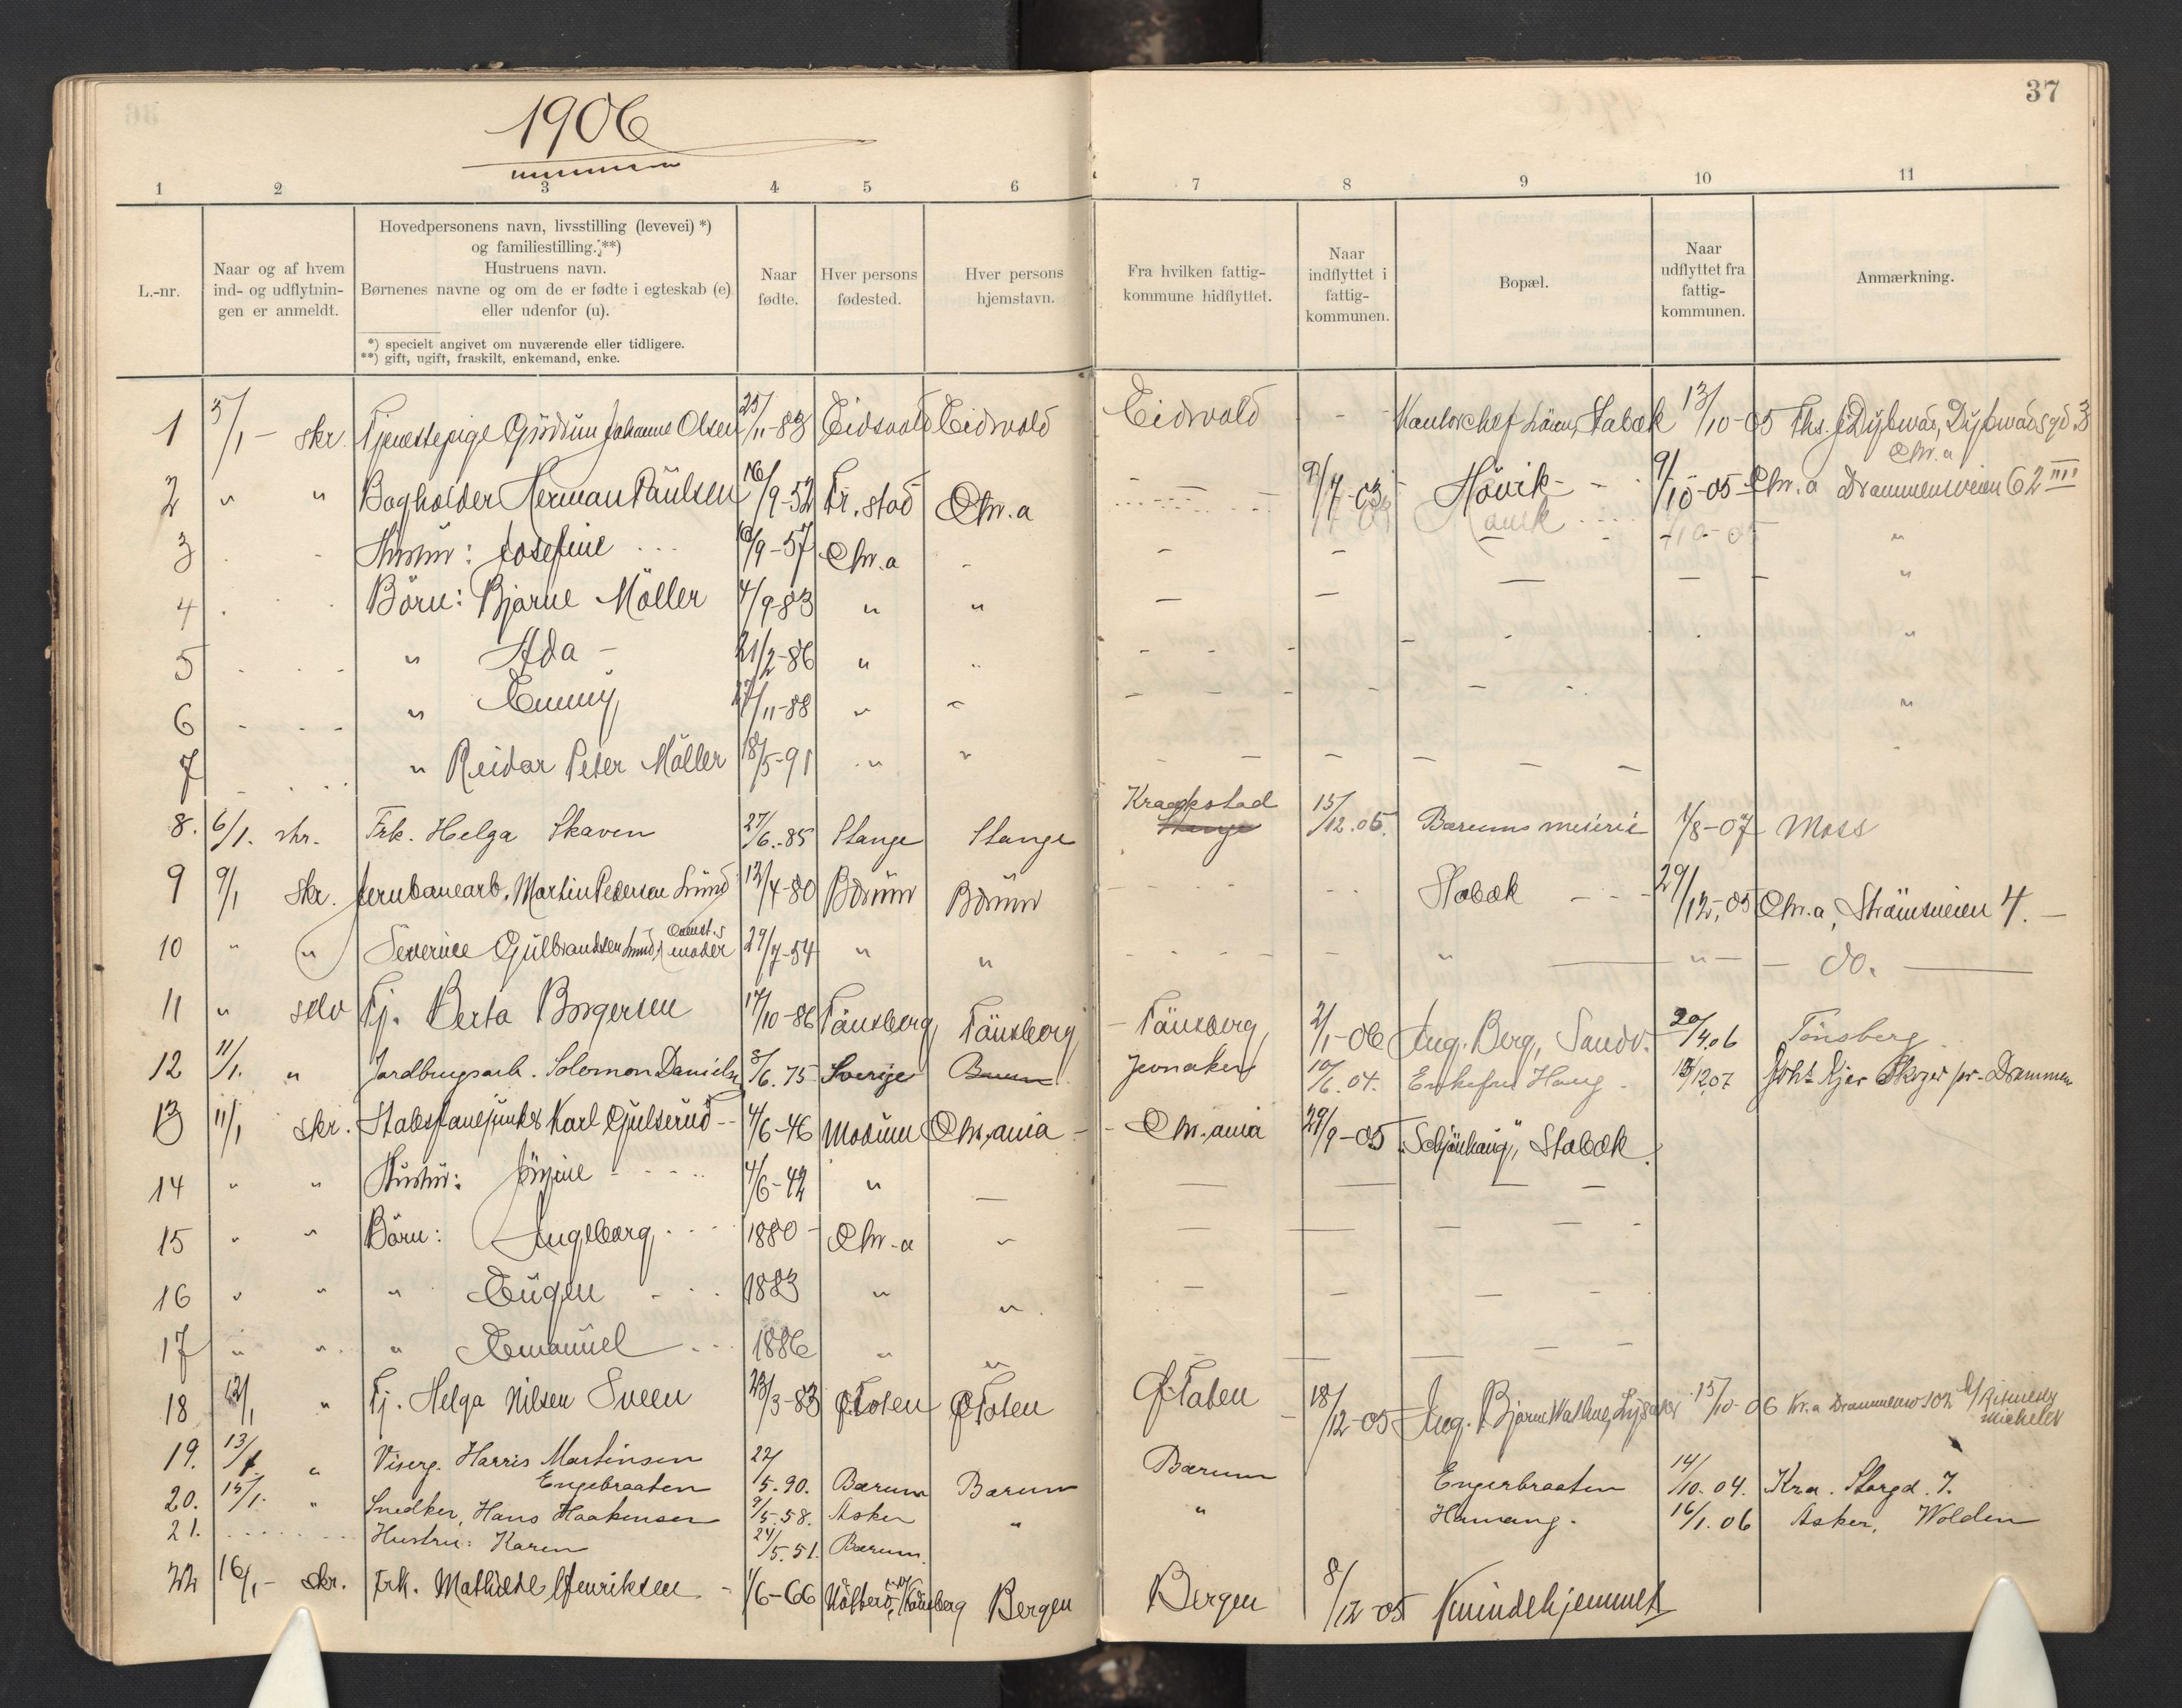 1906
37
1 2 3 4 5 6 7 8 9 10 11
L.-nr.
Naar og af hvem
ind- og udflytnin-
gen er anmeldt.
Hovedpersonens navn, livsstilling (levevei) *)
og familiestilling. **)
Hustruens navn.
Børnenes navne og om de er fødte i egteskab (e)
eller udenfor (u).
*) specielt angivet om nuværende eller tidligere.
**) gift, ugift, fraskilt, enkemand, enke.
Naar
fødte.
Hver persons
fødested.
Hver persons
hjemstavn.
Fra hvilken fattig-
kommune hidflyttet.
Naar
indflyttet i
fattig-
kommunen.
Bopæl.
Naar
udflyttet fra
fattig-
kommunen.
Anmærkning.
1 5/1 - skr. Tjenestepige Gudrun Johanne Olsen 25/11-83 Eidsvold Eidsvold Eidsvold - - Stabæk 13/10-05 Ths. J. Dybwad, Dybwadsgd. 3
Chr.a
2 " " Bogholder Herman Paulsen 16/9-52 Fr.stad Chr.a - 9/7-03 Høvik - 9/10-05 Chr.a Drammensveien 62 III
3 . - Hustru: Josefine ... 16/9-57 Chr.a - - - "
4 . . Børn: Bjarne Möller 4/9-83 " " - - - - - "
5 - - - " Ada - 21/2-86 " " - - - - - "
6 - - - " Emmy 27/11-88 " " - - - - - "
7 - - - " Reidar Peter Möller 18/5-91 " " - - - - - "
8. 6/1. skr. Frk. Helga Skaven 27/6.-85 Stange Stange Kraakstad Stange 15/12.05. Bærums meieri 1/8-07 Moss
9 9/1 skr. Jernbanearb. Martin Pedersen Lund 12/4-80 Bærum Bærum - - Stabæk - - 29/12-05 Chr.a, Strømsveien 4. -
10 " " Severine Gulbrandsen Lund, moder 29/7-54 " " - - " " - do.
11 " selv Tj. Berta Borgersen 17/10-86 Tønsberg Tønsberg - Tønsberg 2/1-06 Ing. Berg, Sandv. 20/4.06 Tønsberg
12 11/1. " Jordbrugsarb. Solomon Danielsen 8/6.75 Sverige Bærum Jevnaker 10/6.04. Enkefru Haug. 13/12.07 Joh. Kjer Skoger pr. Drammen
13 11/1 skr. Stabsfanejunker Karl Gulserud - 4/6-46 Modum Chr.ania - - Chr.ania 29/9-05 "Schjønhaug", Stabæk.
14 " " Hustru: Jørgine - - - 4/6-42 " - - - - -
15 " " Børn: Ingeborg - - 1880 - Chr.a " - - - - -
16 " " " Eugen - - 1883 " " -
17 " " " Emanuel - - 1886 " " - - - - -
18 12/1 " Tj. Helga Nilsen Sveen 23/3-83 Ø Toten Ø Toten Ø. Toten - 18/12-05 Ing. Bjarne Lysaker 15/10-06 Kr.a Drammensv 102
19. 13/1 " Viserg. Harris Martinsen 22/
Engebraaten 5.90. Bærum Bærum Bærum Engerbraaten 14/10.04. Kra. Storgd. 7.
20. 15/1. " Snedker, Hans Haakensen 9/5.58. Asker " " Hamang. 16/1.06 Asker, Wolden
21. - - - Hustru: Karen 24/5.51. Bærum.
22 16/1 - skr. Frk. Mathilde Henriksen - 1/6-66 Bergen Bergen 8/12-05 Kvindehjemmet